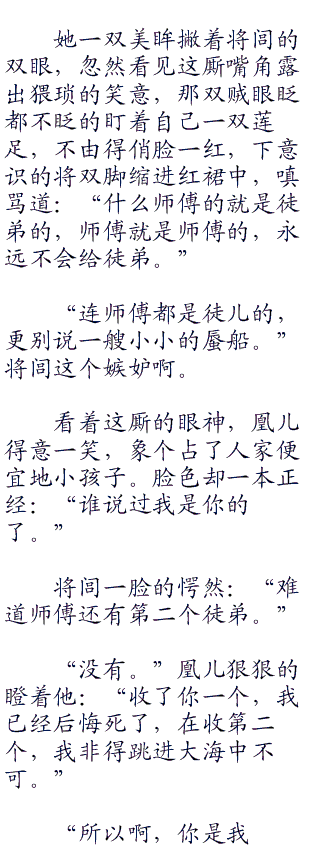 她一双美眸撇着将闾的
双眼，忽然看见这厮嘴角露
出猥琐的笑意，那双贼眼眨
都不眨的盯着自己一双莲
足，不由得俏脸一红，下意
识的将双脚缩进红裙中，嗔
骂道：“什么师傅的就是徒
弟的，师傅就是师傅的，永
远不会给徒弟。”
“连师傅都是徒儿的，
更别说一艘小小的蜃船。”
将闾这个嫉妒啊。
看着这厮的眼神，凰儿
得意一笑，象个占了人家便
宜地小孩子。脸色却一本正
经：“谁说过我是你的
了。”
将闾一脸的愕然：“难
道师傅还有第二个徒弟。”
“没有。”凰儿狠狠的
瞪着他：“收了你一个，我
已经后悔死了，在收第二
个，我非得跳进大海中不
可。”
“所以啊，你是我